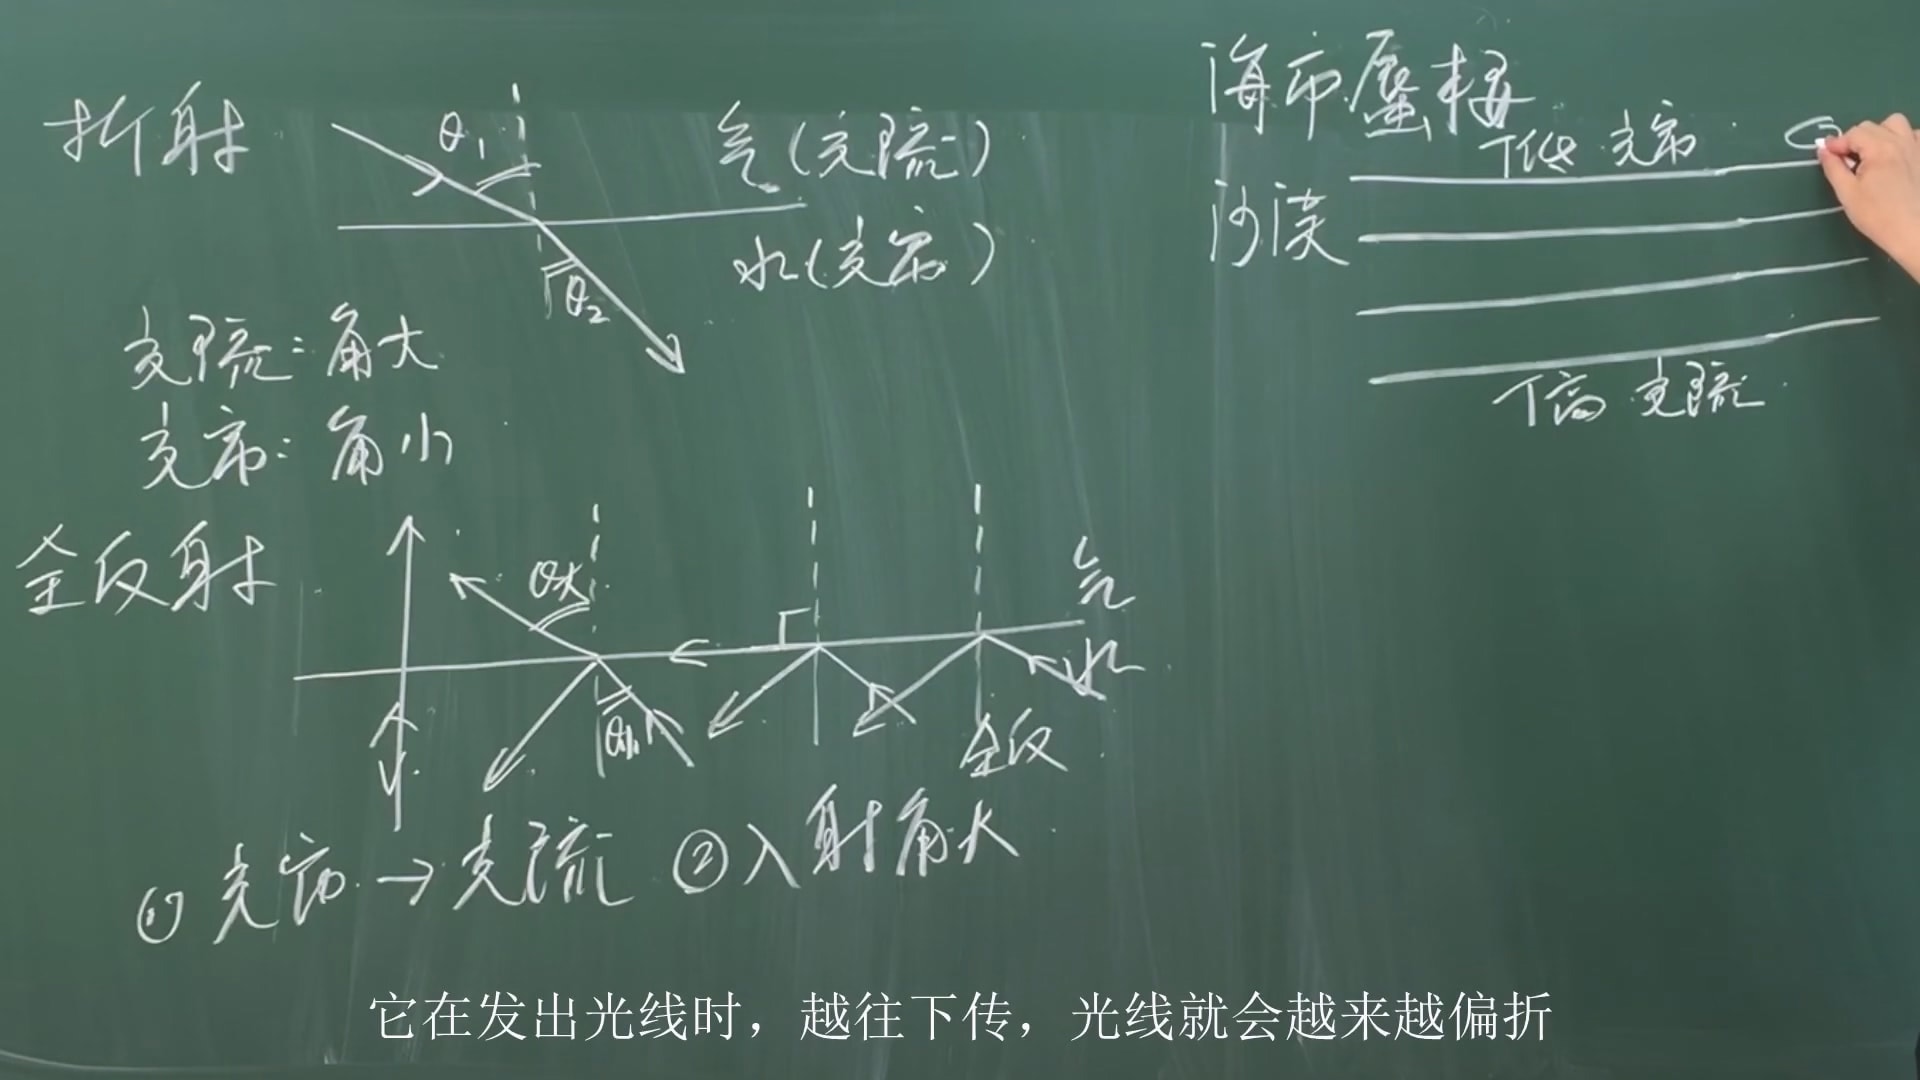 折射
θ₁
气(光疏)
水(光密)
θ₂
光疏:角大
光密:角小
全反射
θ大
气
水
θ小
全反
①光密→光疏 ②入射角大
海市蜃楼
T低 光密
沙漠
T高 光疏
它在发出光线时，越往下传，光线就会越来越偏折